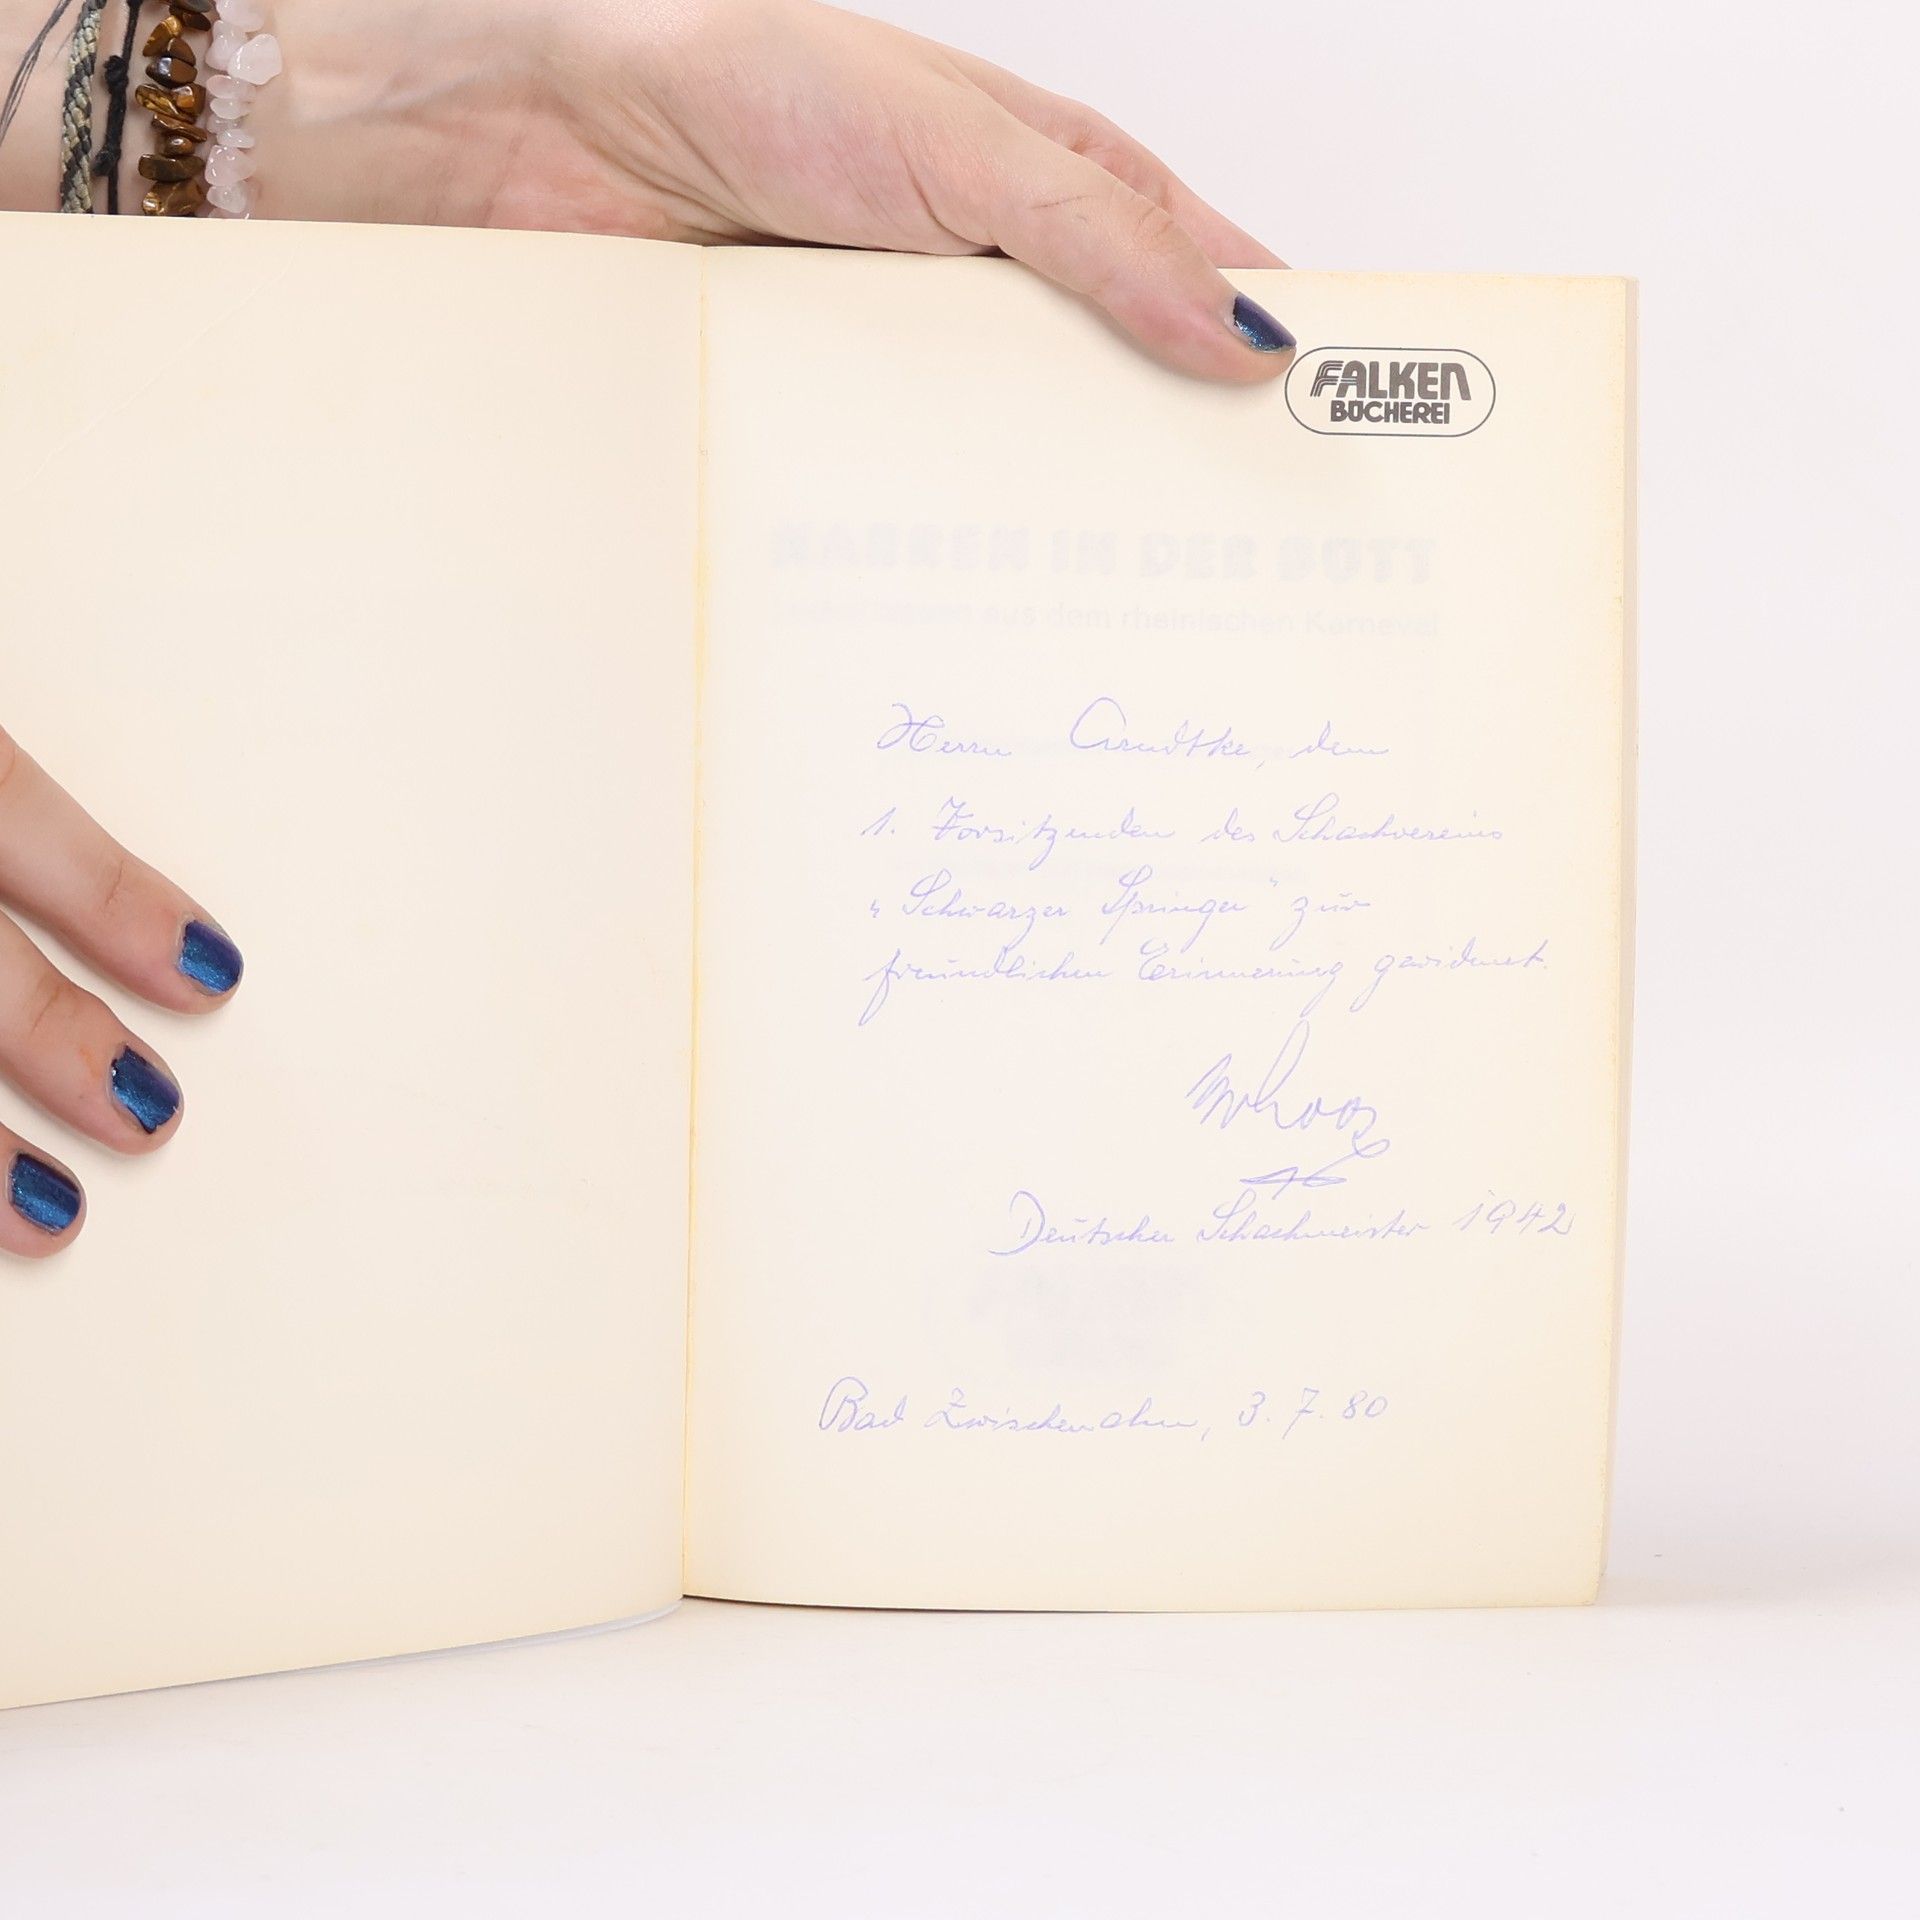 FALKEN
BÜCHEREI
NARREN IN DER BÜTT
aus dem rheinischen Karneval
Herrn Arndtke, dem
1. Vorsitzenden des Schachvereins
„Schwarzer Springer" zur
freundlichen Erinnerung gewidmet.
Deutscher Schachmeister 1942
Bad Zwischenahn, 3.7.80